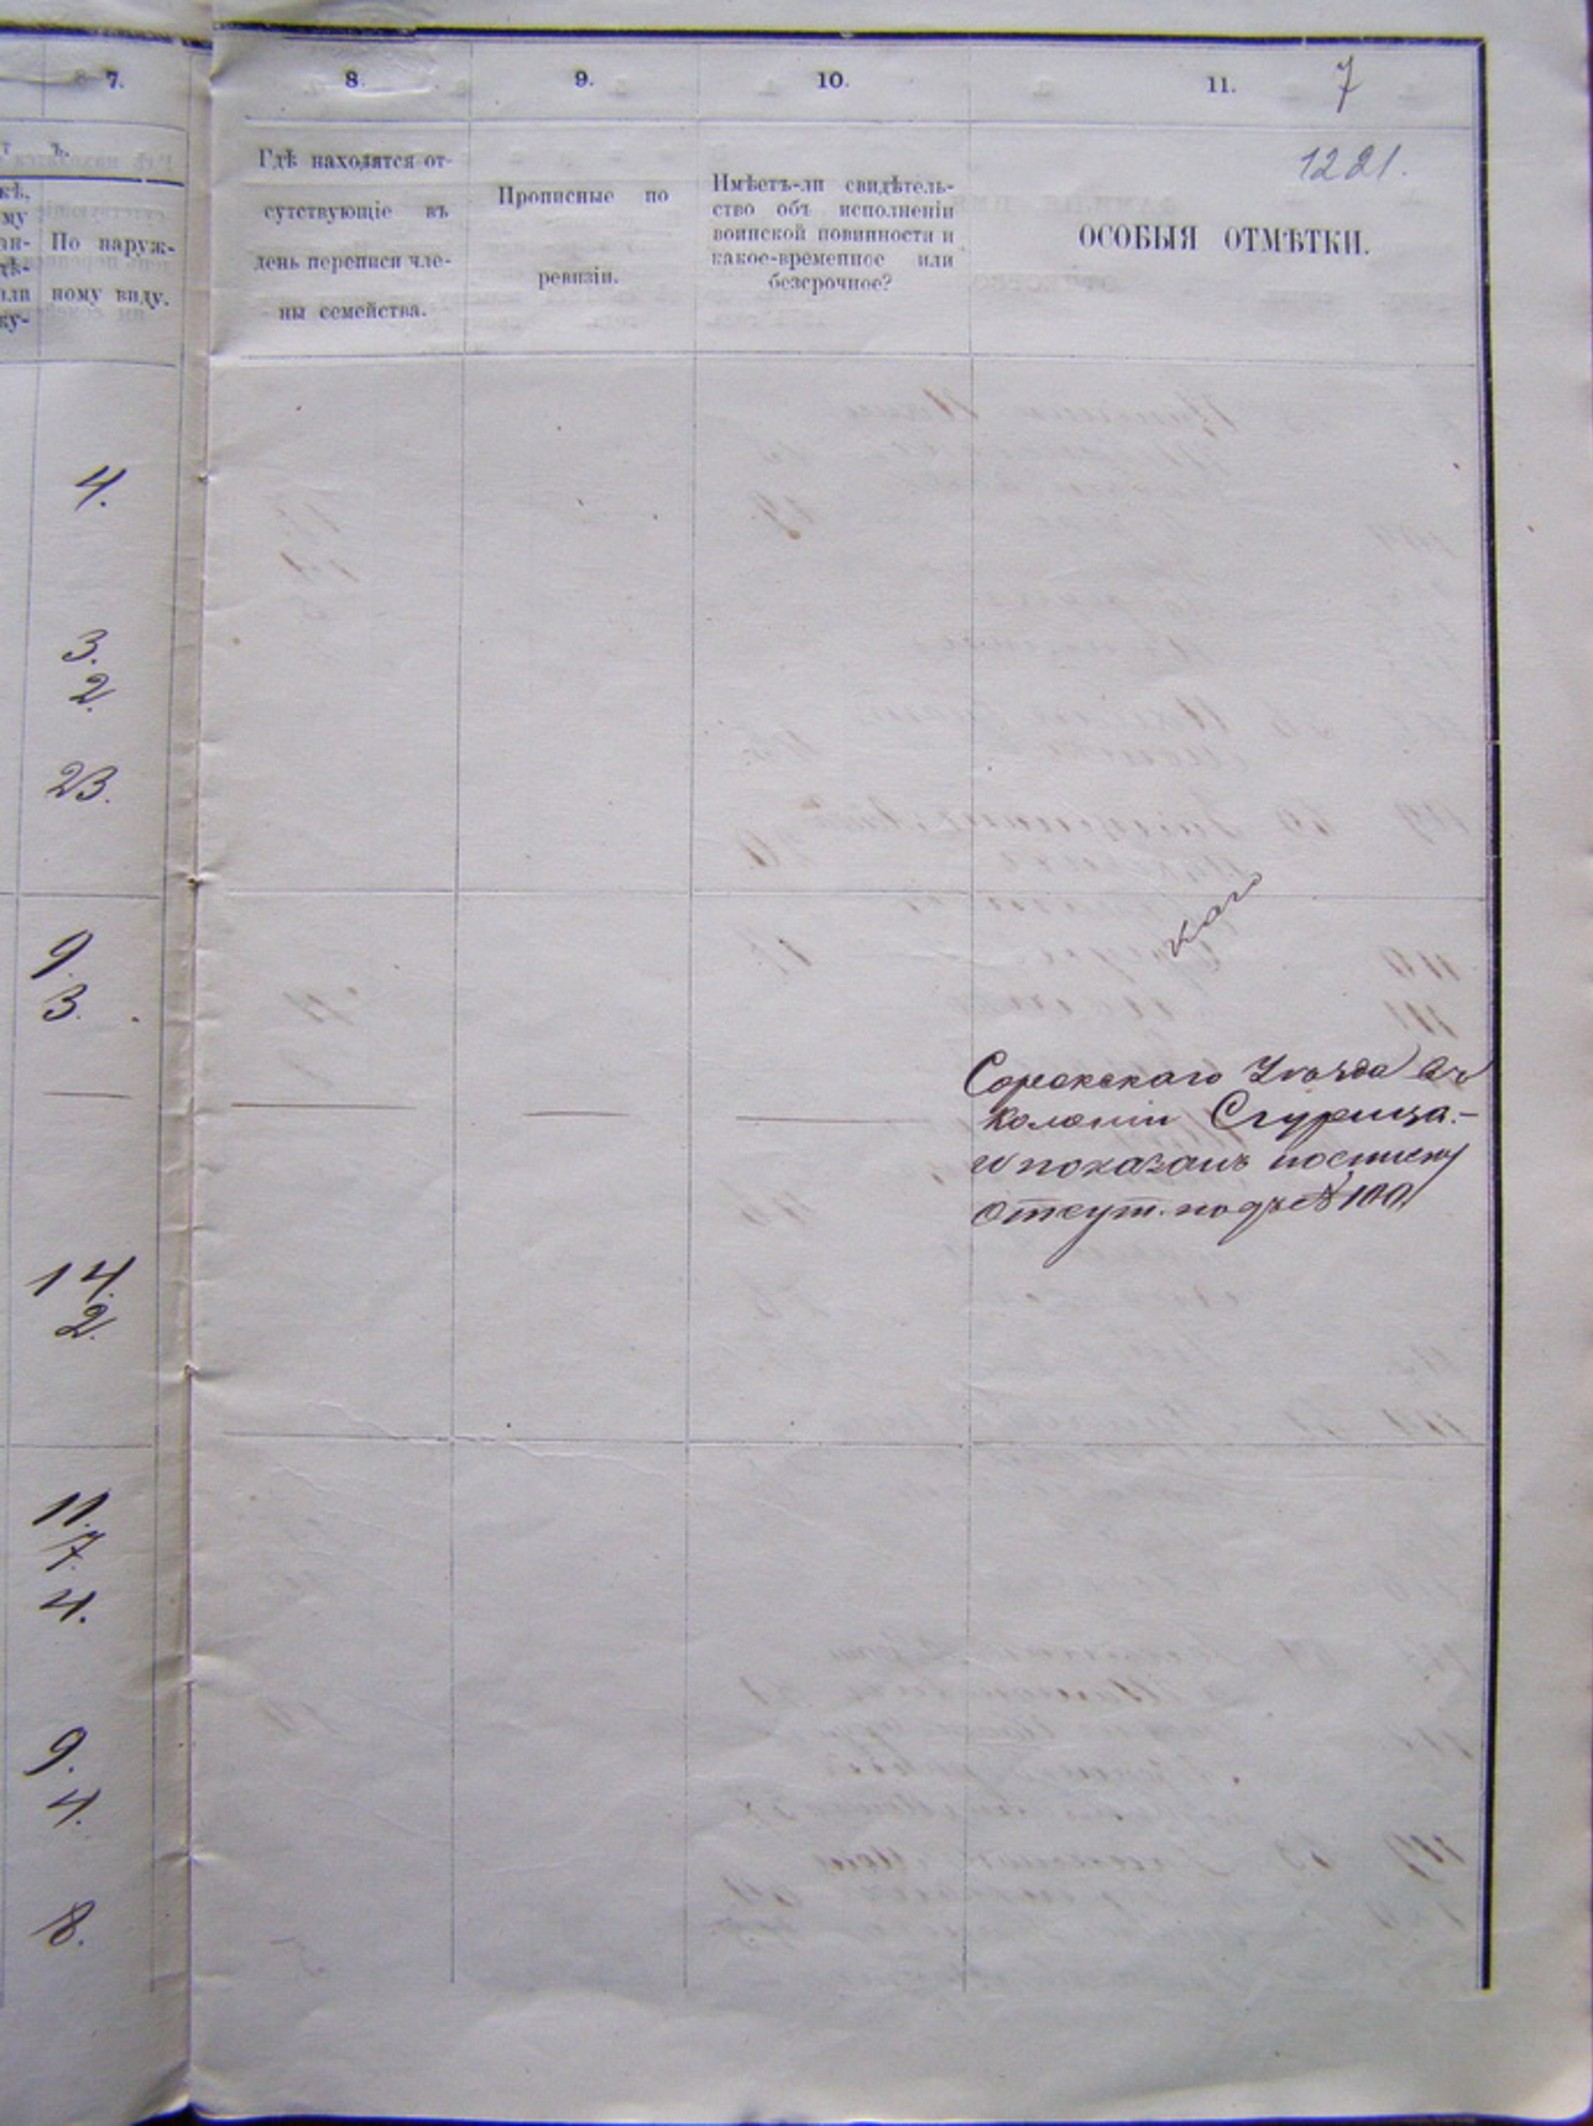 7.
8.
9.
10.
11.
7
1221.
т ъ.
кѣ,
му
ан-
дѣ-
или
ку-
По наруж-
ному виду.
Гдѣ находятся от-
сутствующіе въ
день переписи чле-
ны семейства.
Прописные по
ревизіи.
Имѣетъ-ли свидѣтель-
ство объ исполненіи
воинской повинности и
какое-временное или
безсрочное?
ОСОБЫЯ ОТМѢТКИ.
4.
3.
2.
23.
9.
3.
каго
Сорокскаго Уѣзда въ
колоніи Сгурица.-
и показанъ
отсут. подъ № 100
14.
2.
11.
7.
4.
9.
4.
8.